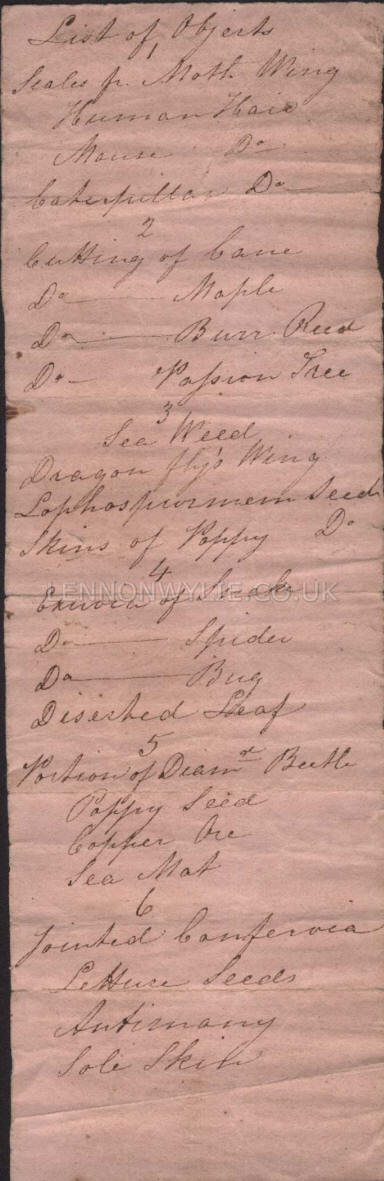 List of Objects
1
Scales fr. Moth Wing
Human Hair
Mouse Do
Caterpillar Do
2
Cutting of Cane
Do — Maple
Do — Burr Reed
Do — Passion Tree
3
Sea Weed
Dragon fly's Wing
Lophospurmem Seed
Skins of Poppy Do
4
LENNONWYLIE.CO.UK
Exuvia of Snake
Do — Spider
Do — Bug
Disected Leaf
5
Portion of Diamd Beetle
Poppy Seed
Copper Ore
Sea Mat
6
Jointed Confervia
Lettuce Seeds
Antimony
Sole Skin